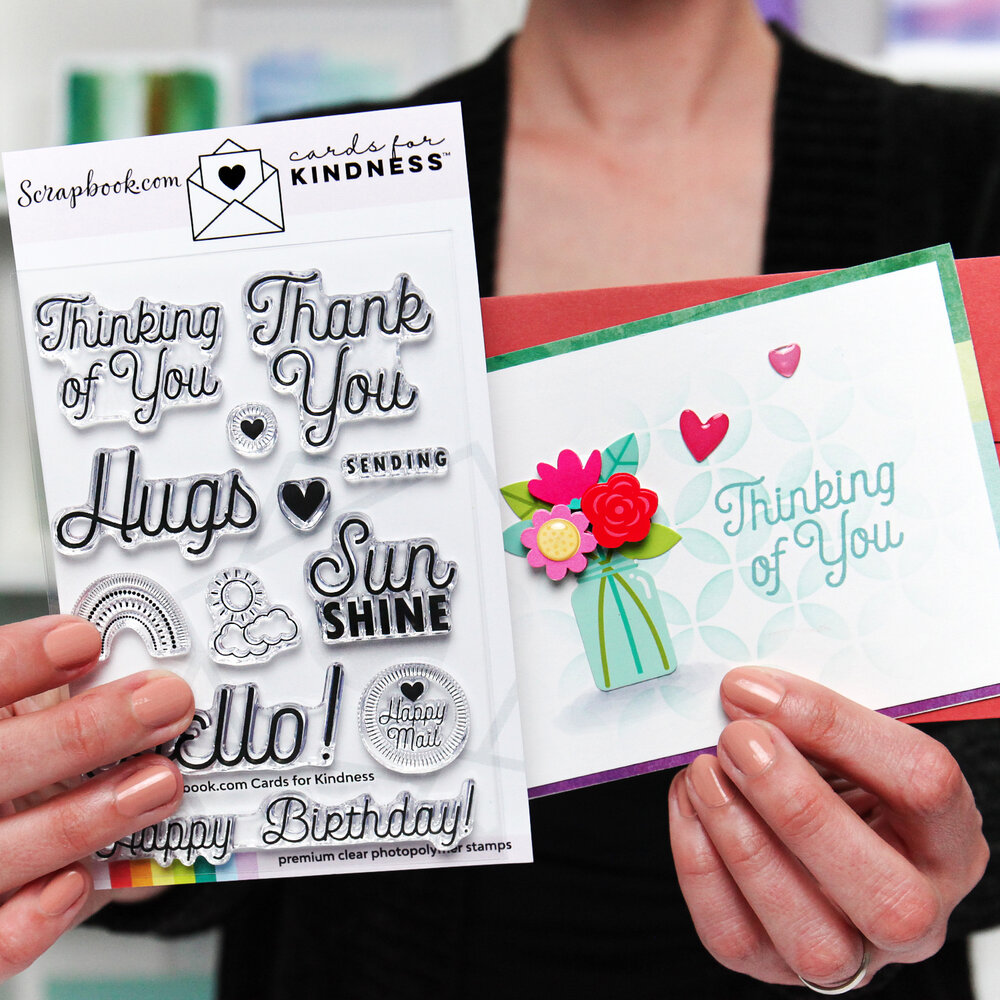 Scrapbook.com
cards for
KINDNESS™
Thinking
of You
Thank
You
Hugs
SENDING
Sun
SHINE
ello!
Happy
Mail
book.com Cards for Kindness
Happy Birthday!
premium clear photopolymer stamps
Thinking
of You